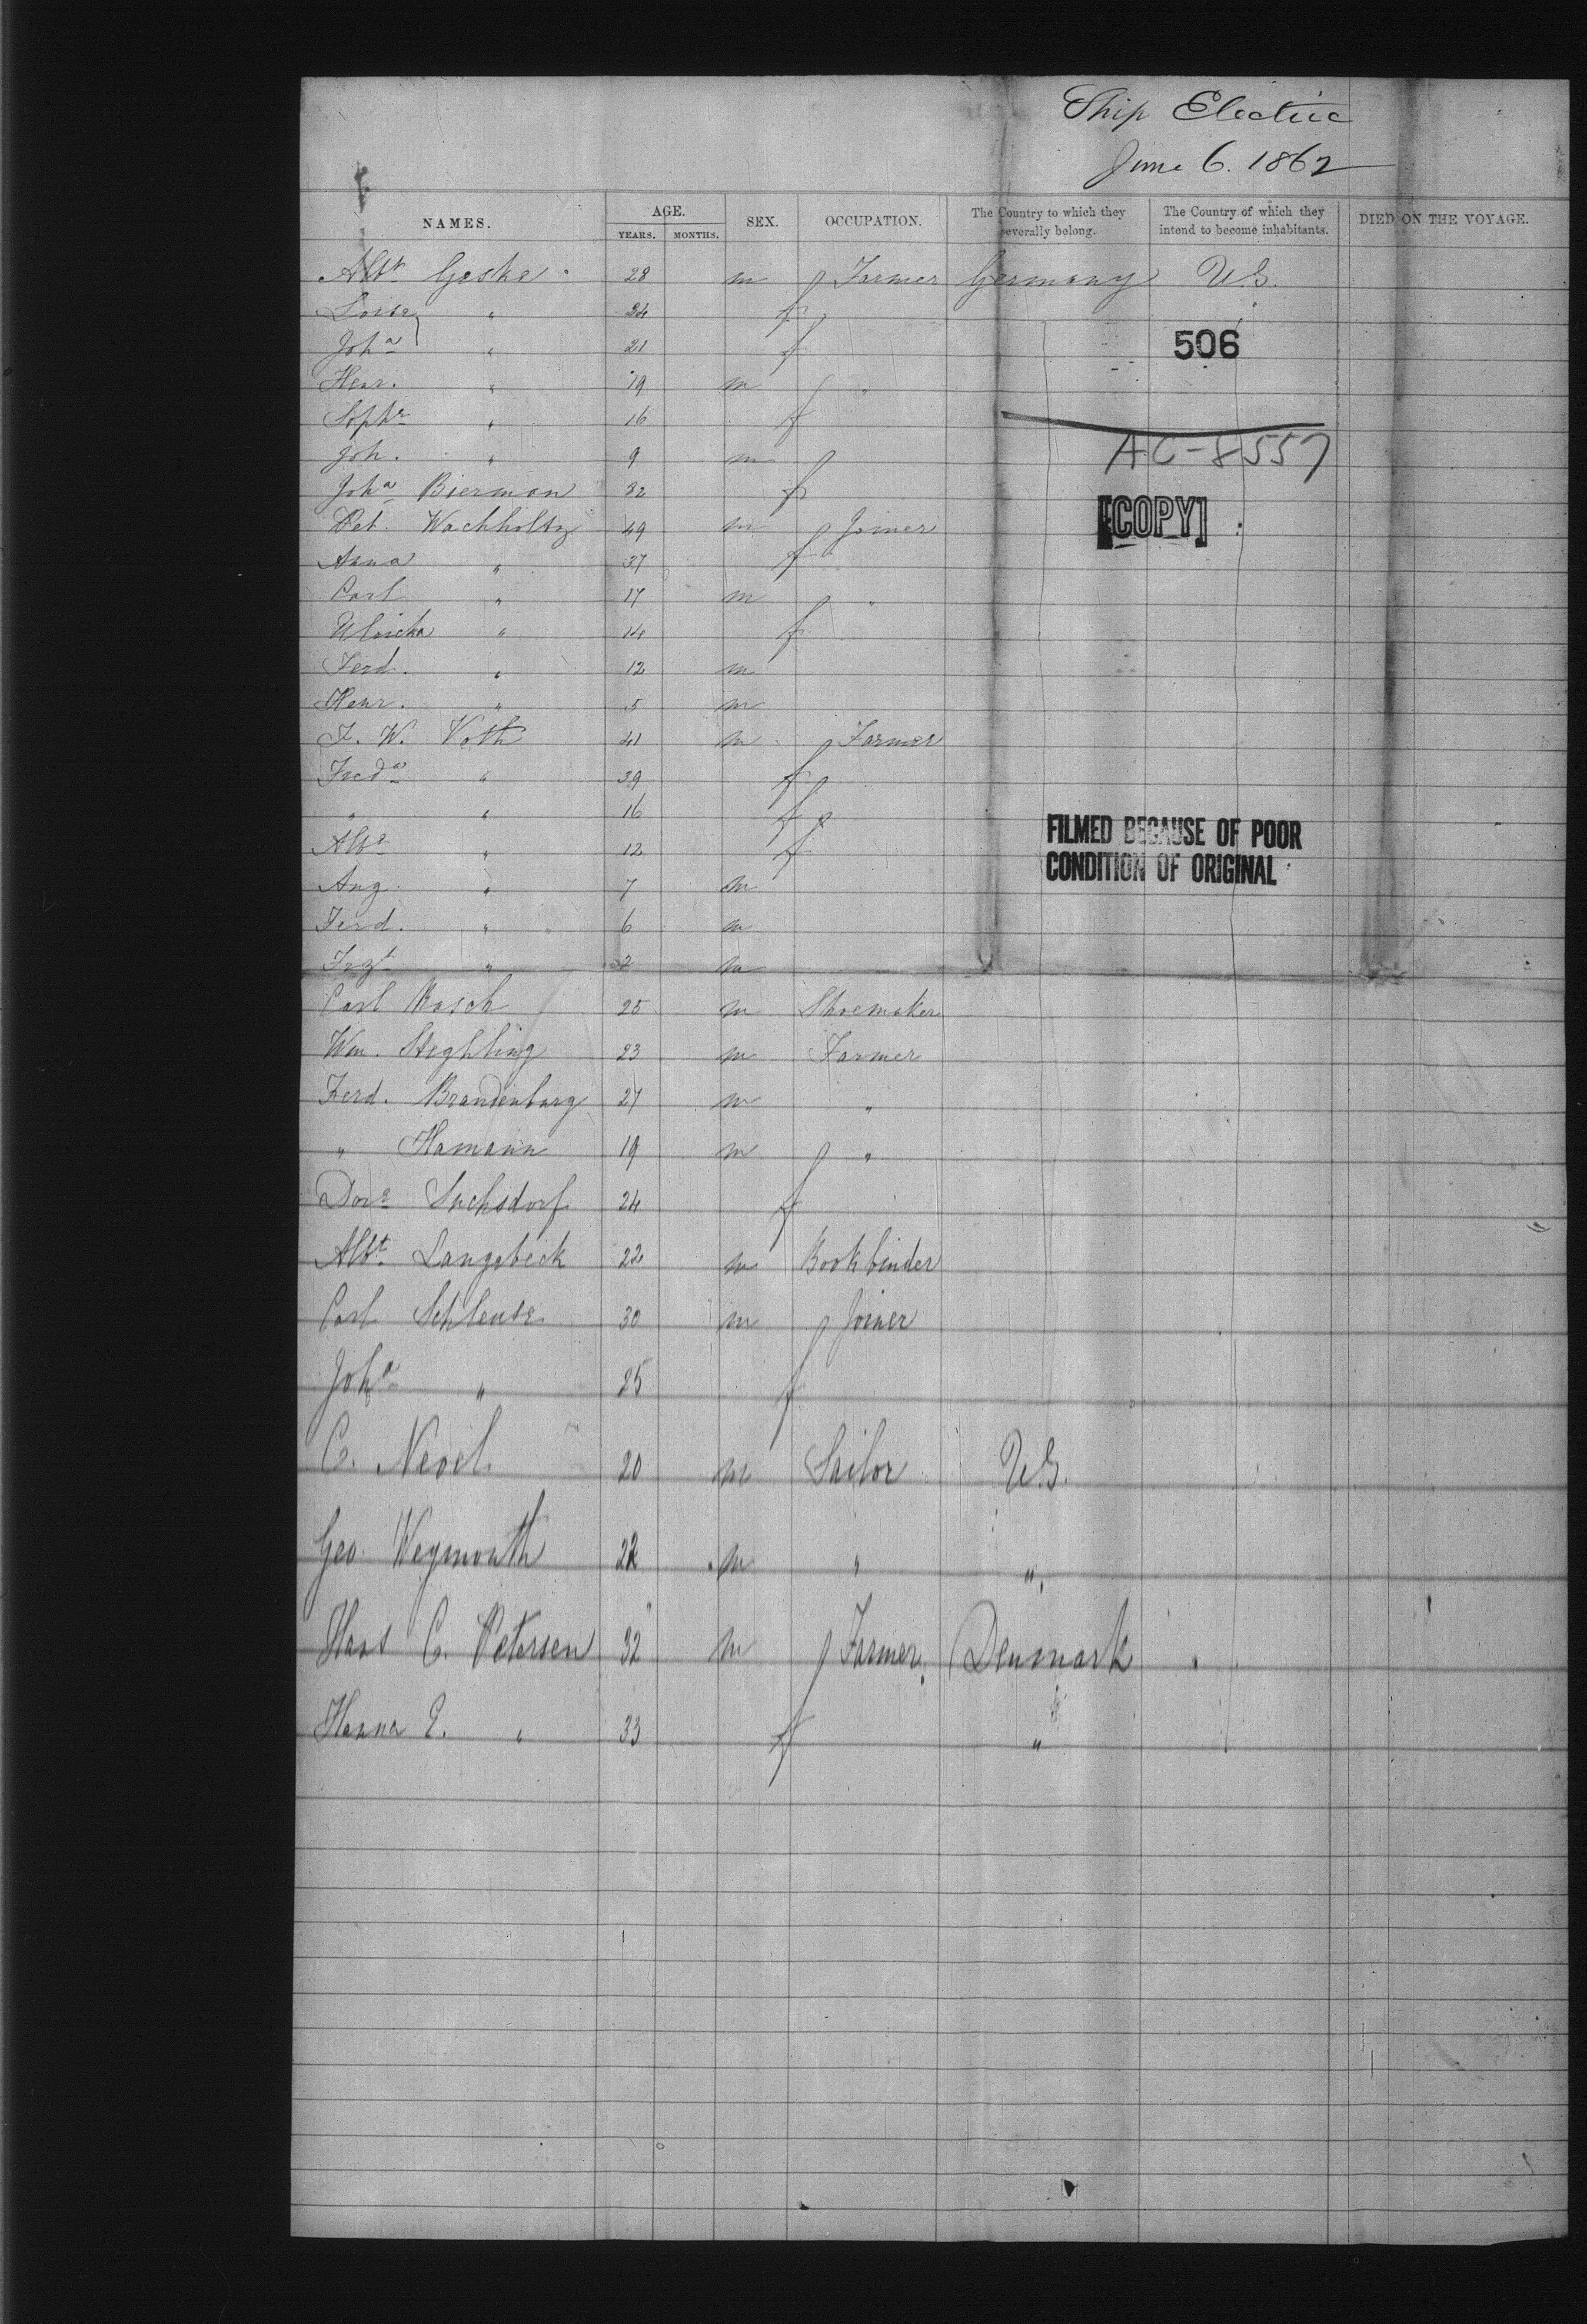 Ship Electric
June 6. 1862
NAMES. AGE. YEARS. MONTHS. SEX. OCCUPATION. The Country to which they severally belong. The Country of which they intend to become inhabitants. DIED ON THE VOYAGE.
Albt Geske 28 m Farmer Germany U.S.
Loise " 24 f
Joha " 21 f
506
Henr. " 19 m "
Sophe " 16 f
Joh. " 9 m
AC-8557
Joha Bierman 32 f
[COPY]
Pet. Wachholtz 49 m Joiner
Anna " 37 f
Carl " 17 m "
Ulricka " 14 f
Ferd. " 12 m
Henr. " 5 m
F. W. Voth 41 m Farmer
Freda " 39 f
" " 16 f
FILMED BECAUSE OF POOR
CONDITION OF ORIGINAL
Albe " 12 f
Aug. " 7 m
Ferd. " 6 m
" 2 m
Carl Basch 25 m Shoemaker
Wm. Steghling 23 m Farmer
Ferd. Brandenburg 27 m "
" Hamann 19 m "
Dore Suchsdorf 24 f
Albt Langebeck 22 m Bookbinder
Carl Schleuse 30 m Joiner
Joha " 25 f
C. Nevel 20 m Sailor U.S.
Geo. Weymouth 22 m " "
Hans C. Petersen 32 m Farmer Denmark "
Hanna E. " 33 f "